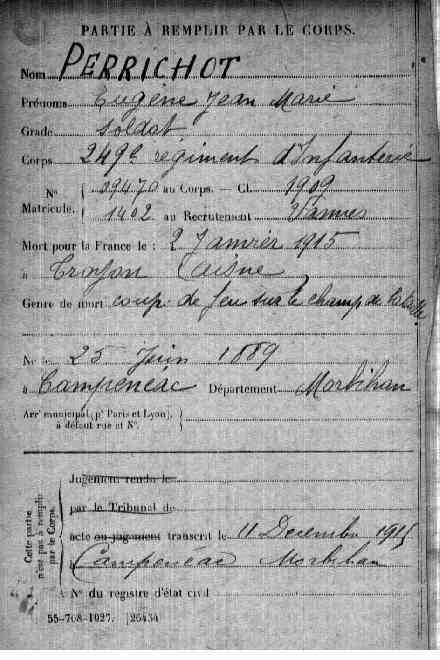 PARTIE À REMPLIR PAR LE CORPS.
Nom PERRICHOT
Prénoms Eugène Jean Marie
Grade soldat
Corps 249e régiment d'Infanterie
N° Matricule. 09470 au Corps. — Cl. 1909
1402 au Recrutement Vannes
Mort pour la France le : 2 Janvier 1915
à Troyon (aisne)
Genre de mort coup de feu sur le champ de bataille
Né le 25 Juin 1889
à Campénéac Département Morbihan
Arrt municipal (pr Paris et Lyon),
à défaut rue et N°.
Cette partie
n'est pas à remplir
par le Corps.
Jugement rendu le
par le Tribunal de
acte ou jugement transcrit le 11 Decembre 1915
à Campénéac Morbihan
N° du registre d'état civil
55-708-1927. [26434